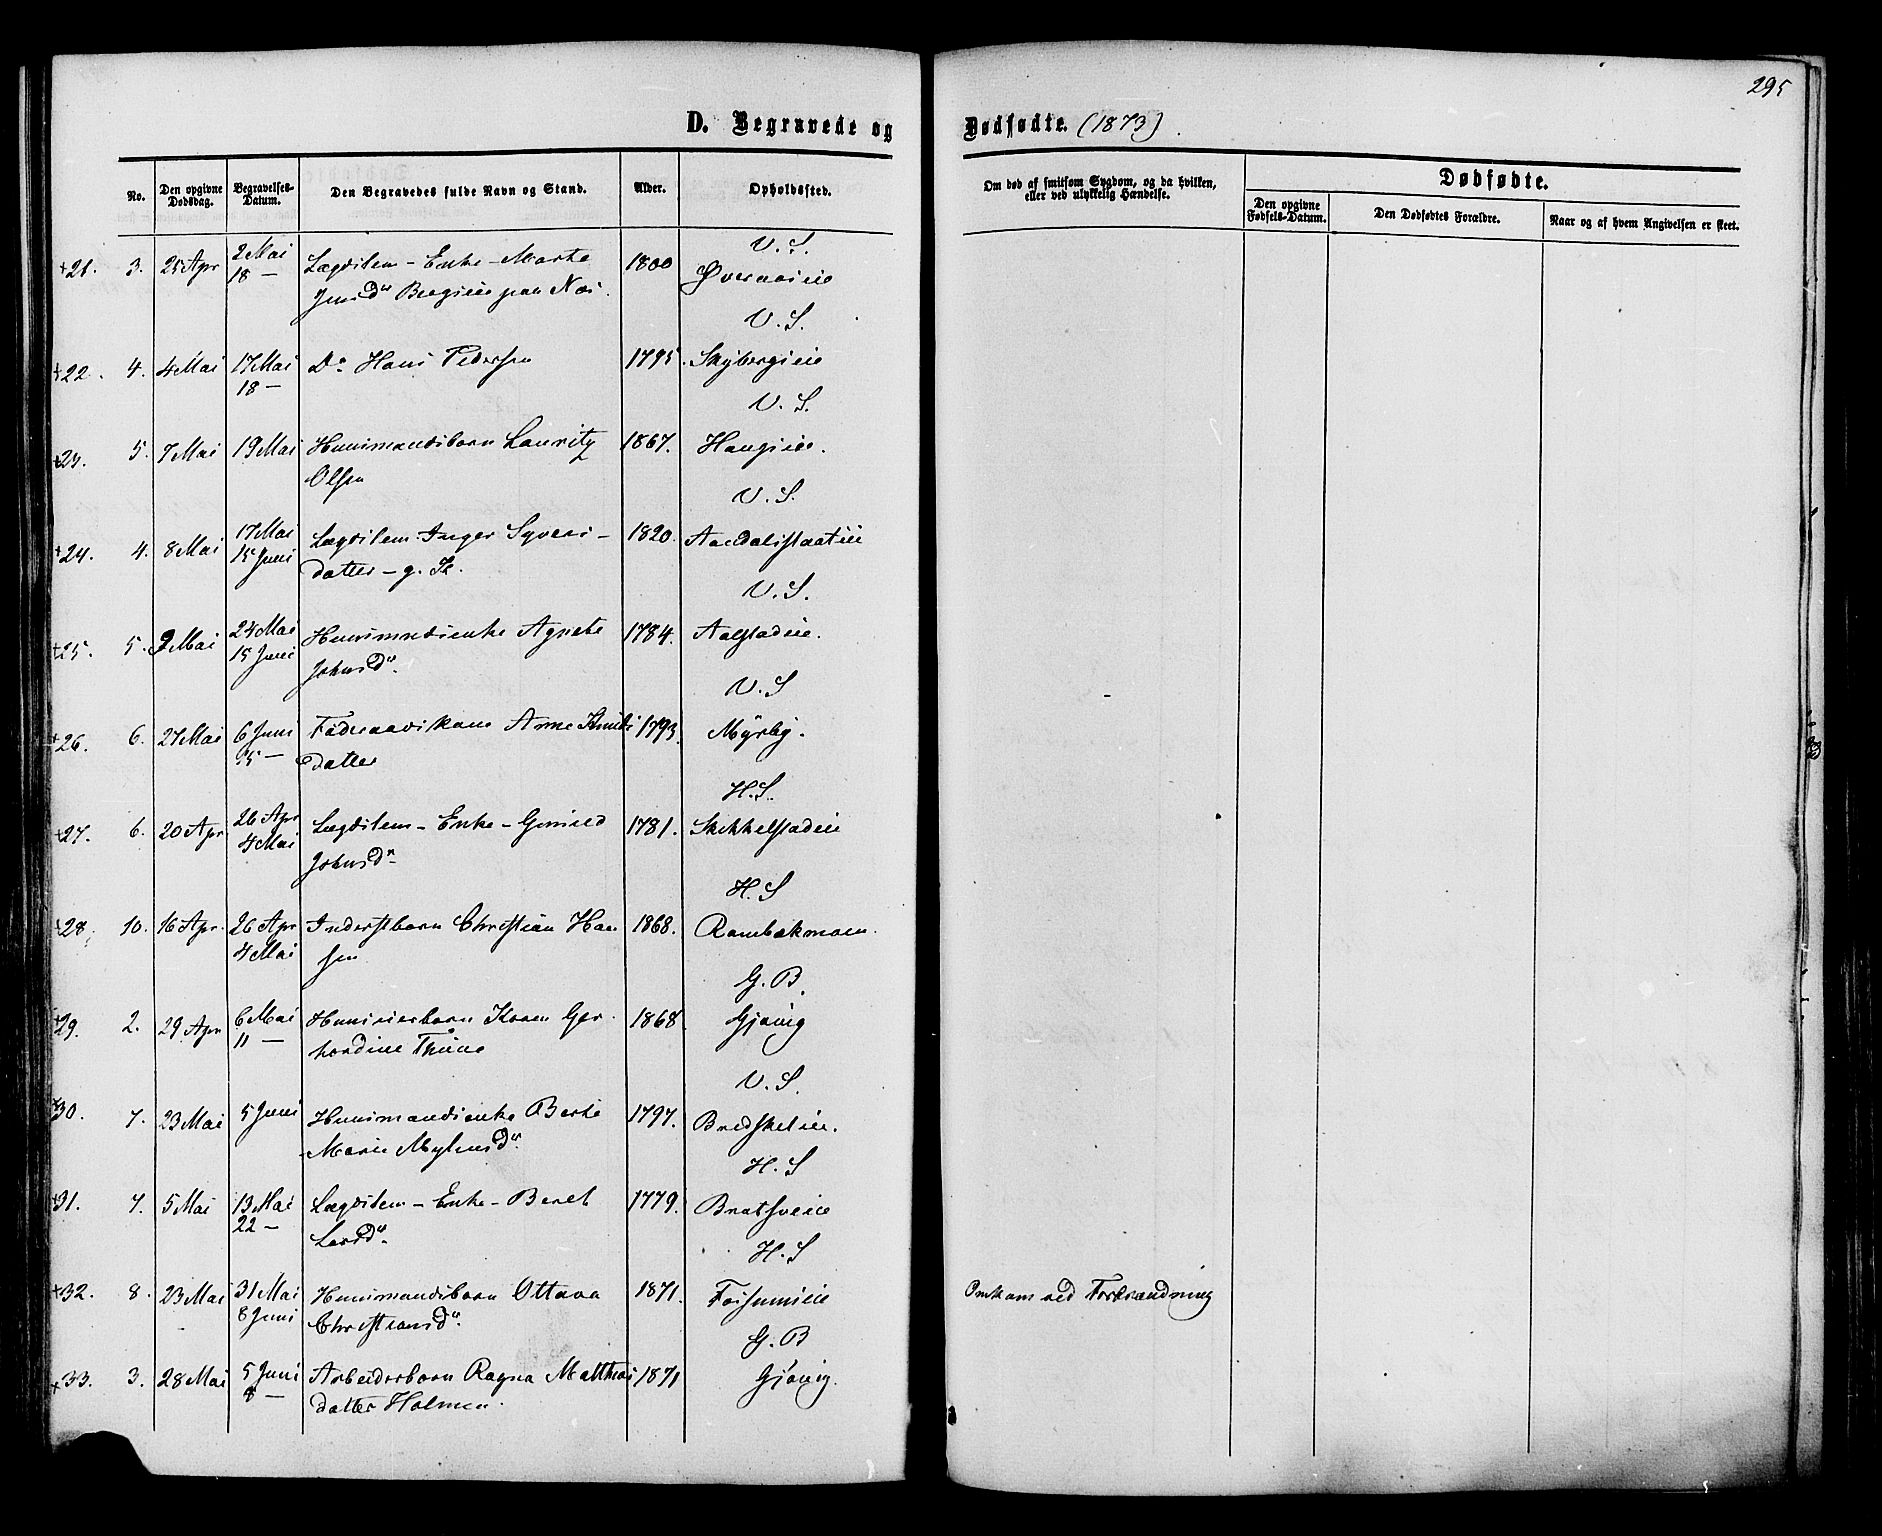 295
D. Begravede og Dødfødte. (1873)
No. Den opgivne Dødsdag. Begravelses-Datum. Den Begravedes fulde Navn og Stand. Alder. Opholdssted.
Om død af smitsom Sygdom, og da hvilken, eller ved ulykkelig Hændelse.
Dødfødte.
Den opgivne Fødsels-Datum. Den Dødfødtes Forældre. Naar og af hvem Angivelsen er skeet.
V. S.
+21. 3. 25 Apr 2 Mai Lægdslem - Enke - Marte 1800 Øveraaseie
18 — Jensdr Bergseie paa Næs.
V. S.
+22. 4. 4 Mai 17 Mai Do Hans Pedersen 1795. Skybergseie
18 —
V. S.
+23. 5. 7 Mai 19 Mai Huusmandsbarn Lauritz 1867. Haugseie.
Olsen
V. S.
+24. 4. 8 Mai 17 Mai Lægdslem Inger Syvers- 1820. Aandalsstaateie
15 Juni datter - g. K.
V. S.
+25. 5. 9 Mai 24 Mai Huusmandsenke Agnete 1784. Aalstadeie.
15 Juni Johnsdr.
V. S
+26. 6. 27 Mai 6 Juni Føderaadskone Anne Knuds 1793. Myrby.
15 — datter
H. S.
+27. 6. 20 Apr 26 Apr Lægdslem - Enke - Gunild 1781. Skikkelstadeie
4 Mai Johnsdr
H. S
+28. 10. 16 Apr. 26 Apr Inderstbarn Christian Han 1868. Rambækmoen.
4 Mai sen
G. B.
+29. 2. 29 Apr 6 Mai Huuseierbarn Karen Ger 1868 Gjøvig
11 — hardine Thune
V. S.
+30. 7. 23 Mai 5 Juni Huusmandsenke Berte 1797. Bredskeleie.
Marie Mylensdr.
H. S
+31. 7. 5 Mai 13 Mai Lægdslem - Enke - Beret 1779. Bratsveie
22 — Larsdr.
H. S
+32. 8. 23 Mai 31 Mai Huusmandsbarn Ottava 1871. Fossumseie Omkom ved Forbrænding
8 Juni Christiansdr.
G. B
+33. 3. 28 Mai 5 Juni Arbeiderbarn Ragna Matthias 1871 Gjøvig.
8 — datter Holmen.